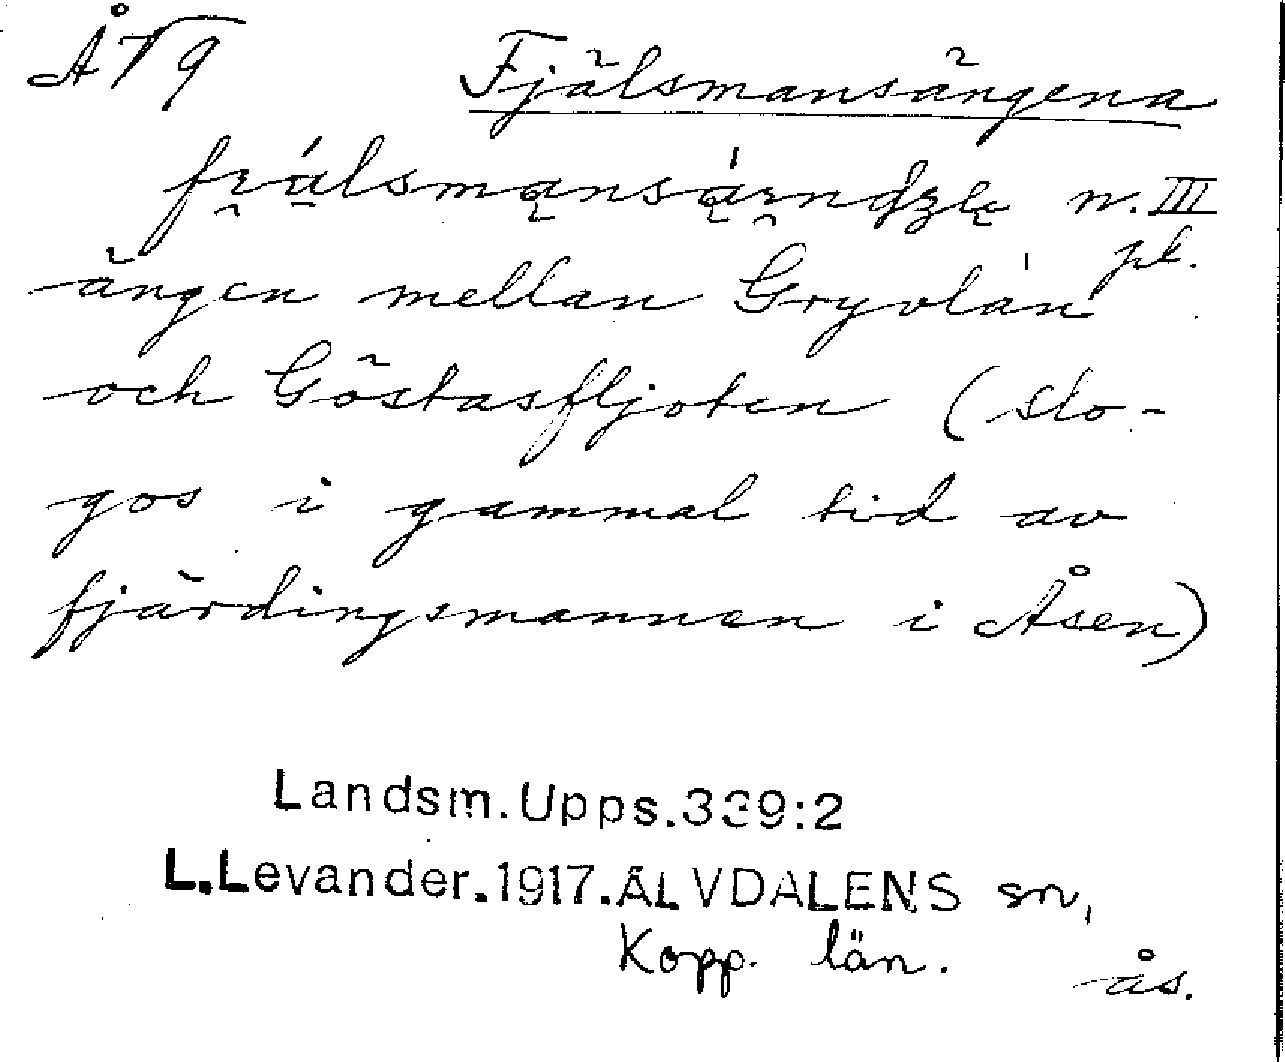 ÅT9
Fjälsmansängena
n. III
pl.
ängen mellan Gryvlån
och Göstasfljoten (slo-
gos i gammal tid av
fjärdingsmannen i Åsen)
Landsm.Upps.339:2
L.Levander.1917.ÄLVDALENS sn,
Kopp. län.
ås.